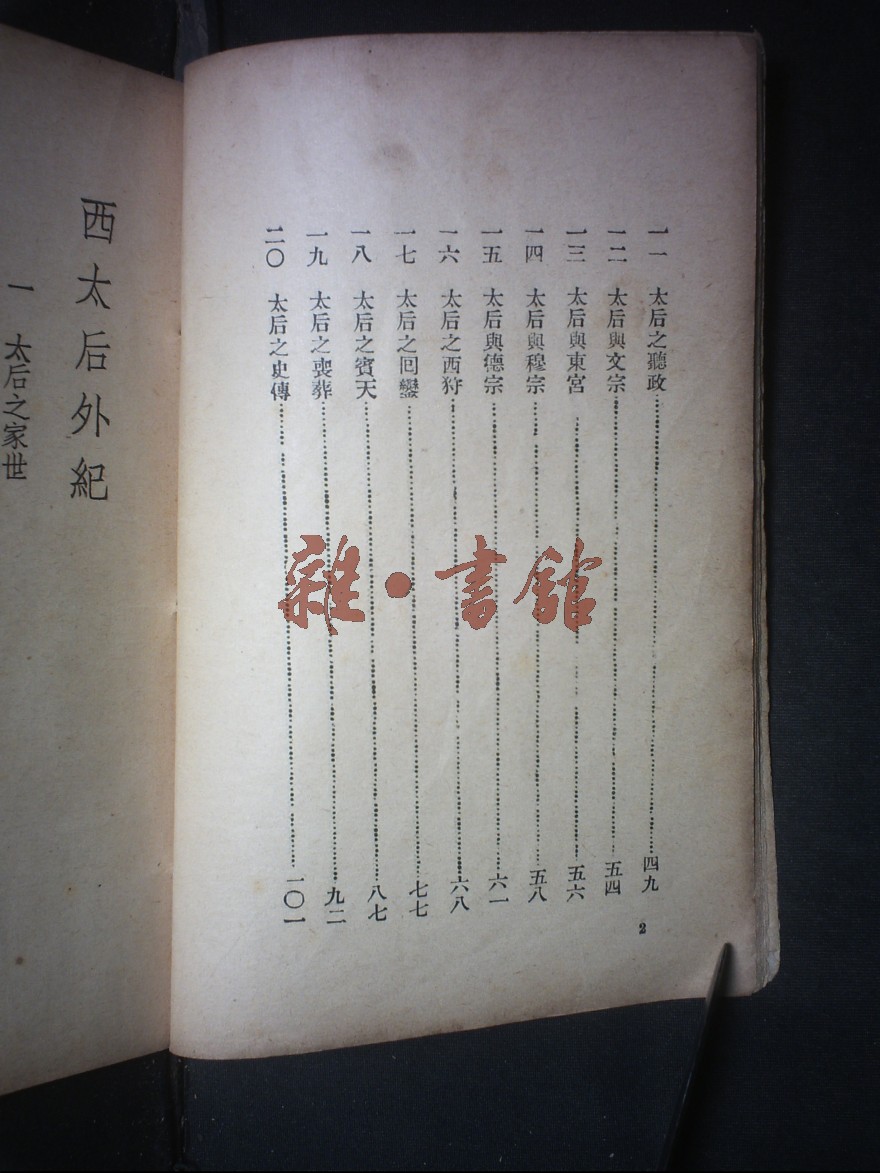 一一 太后之聽政 四九
一二 太后與文宗 五四
一三 太后與東宮 五六
一四 太后與穆宗 五八
一五 太后與德宗 六一
一六 太后之西狩 六八
一七 太后之回鑾 七七
一八 太后之賓天 八七
一九 太后之喪葬 九二
二〇 太后之史傳 一〇一
2
西太后外紀
一 太后之家世
雜·書館